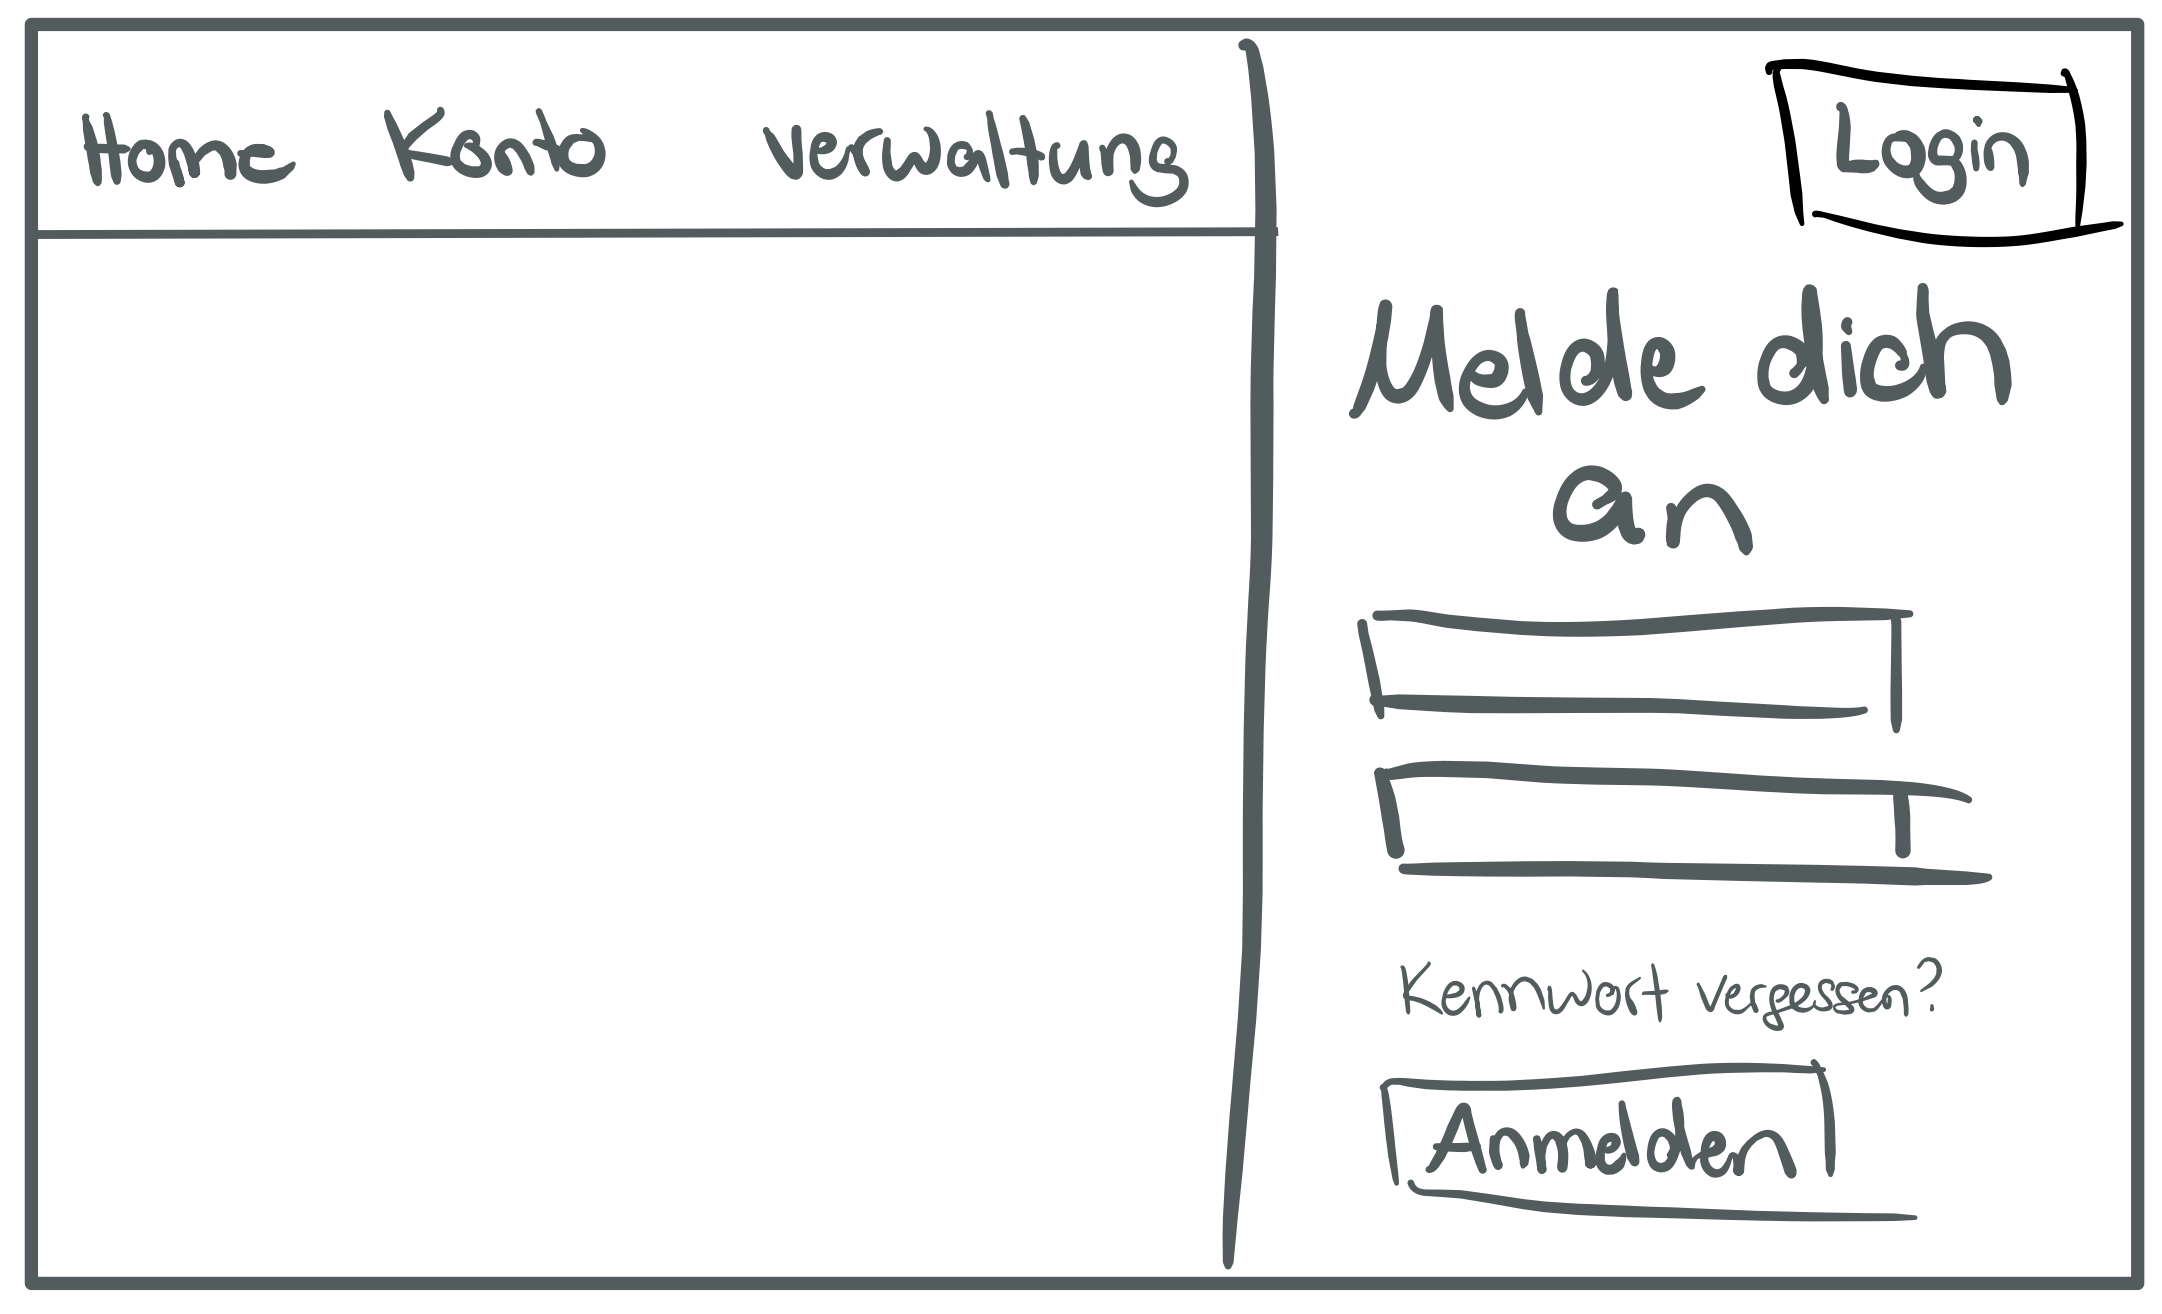 Home Konto Verwaltung Login
Melde dich
an
Kennwort vergessen?
Anmelden